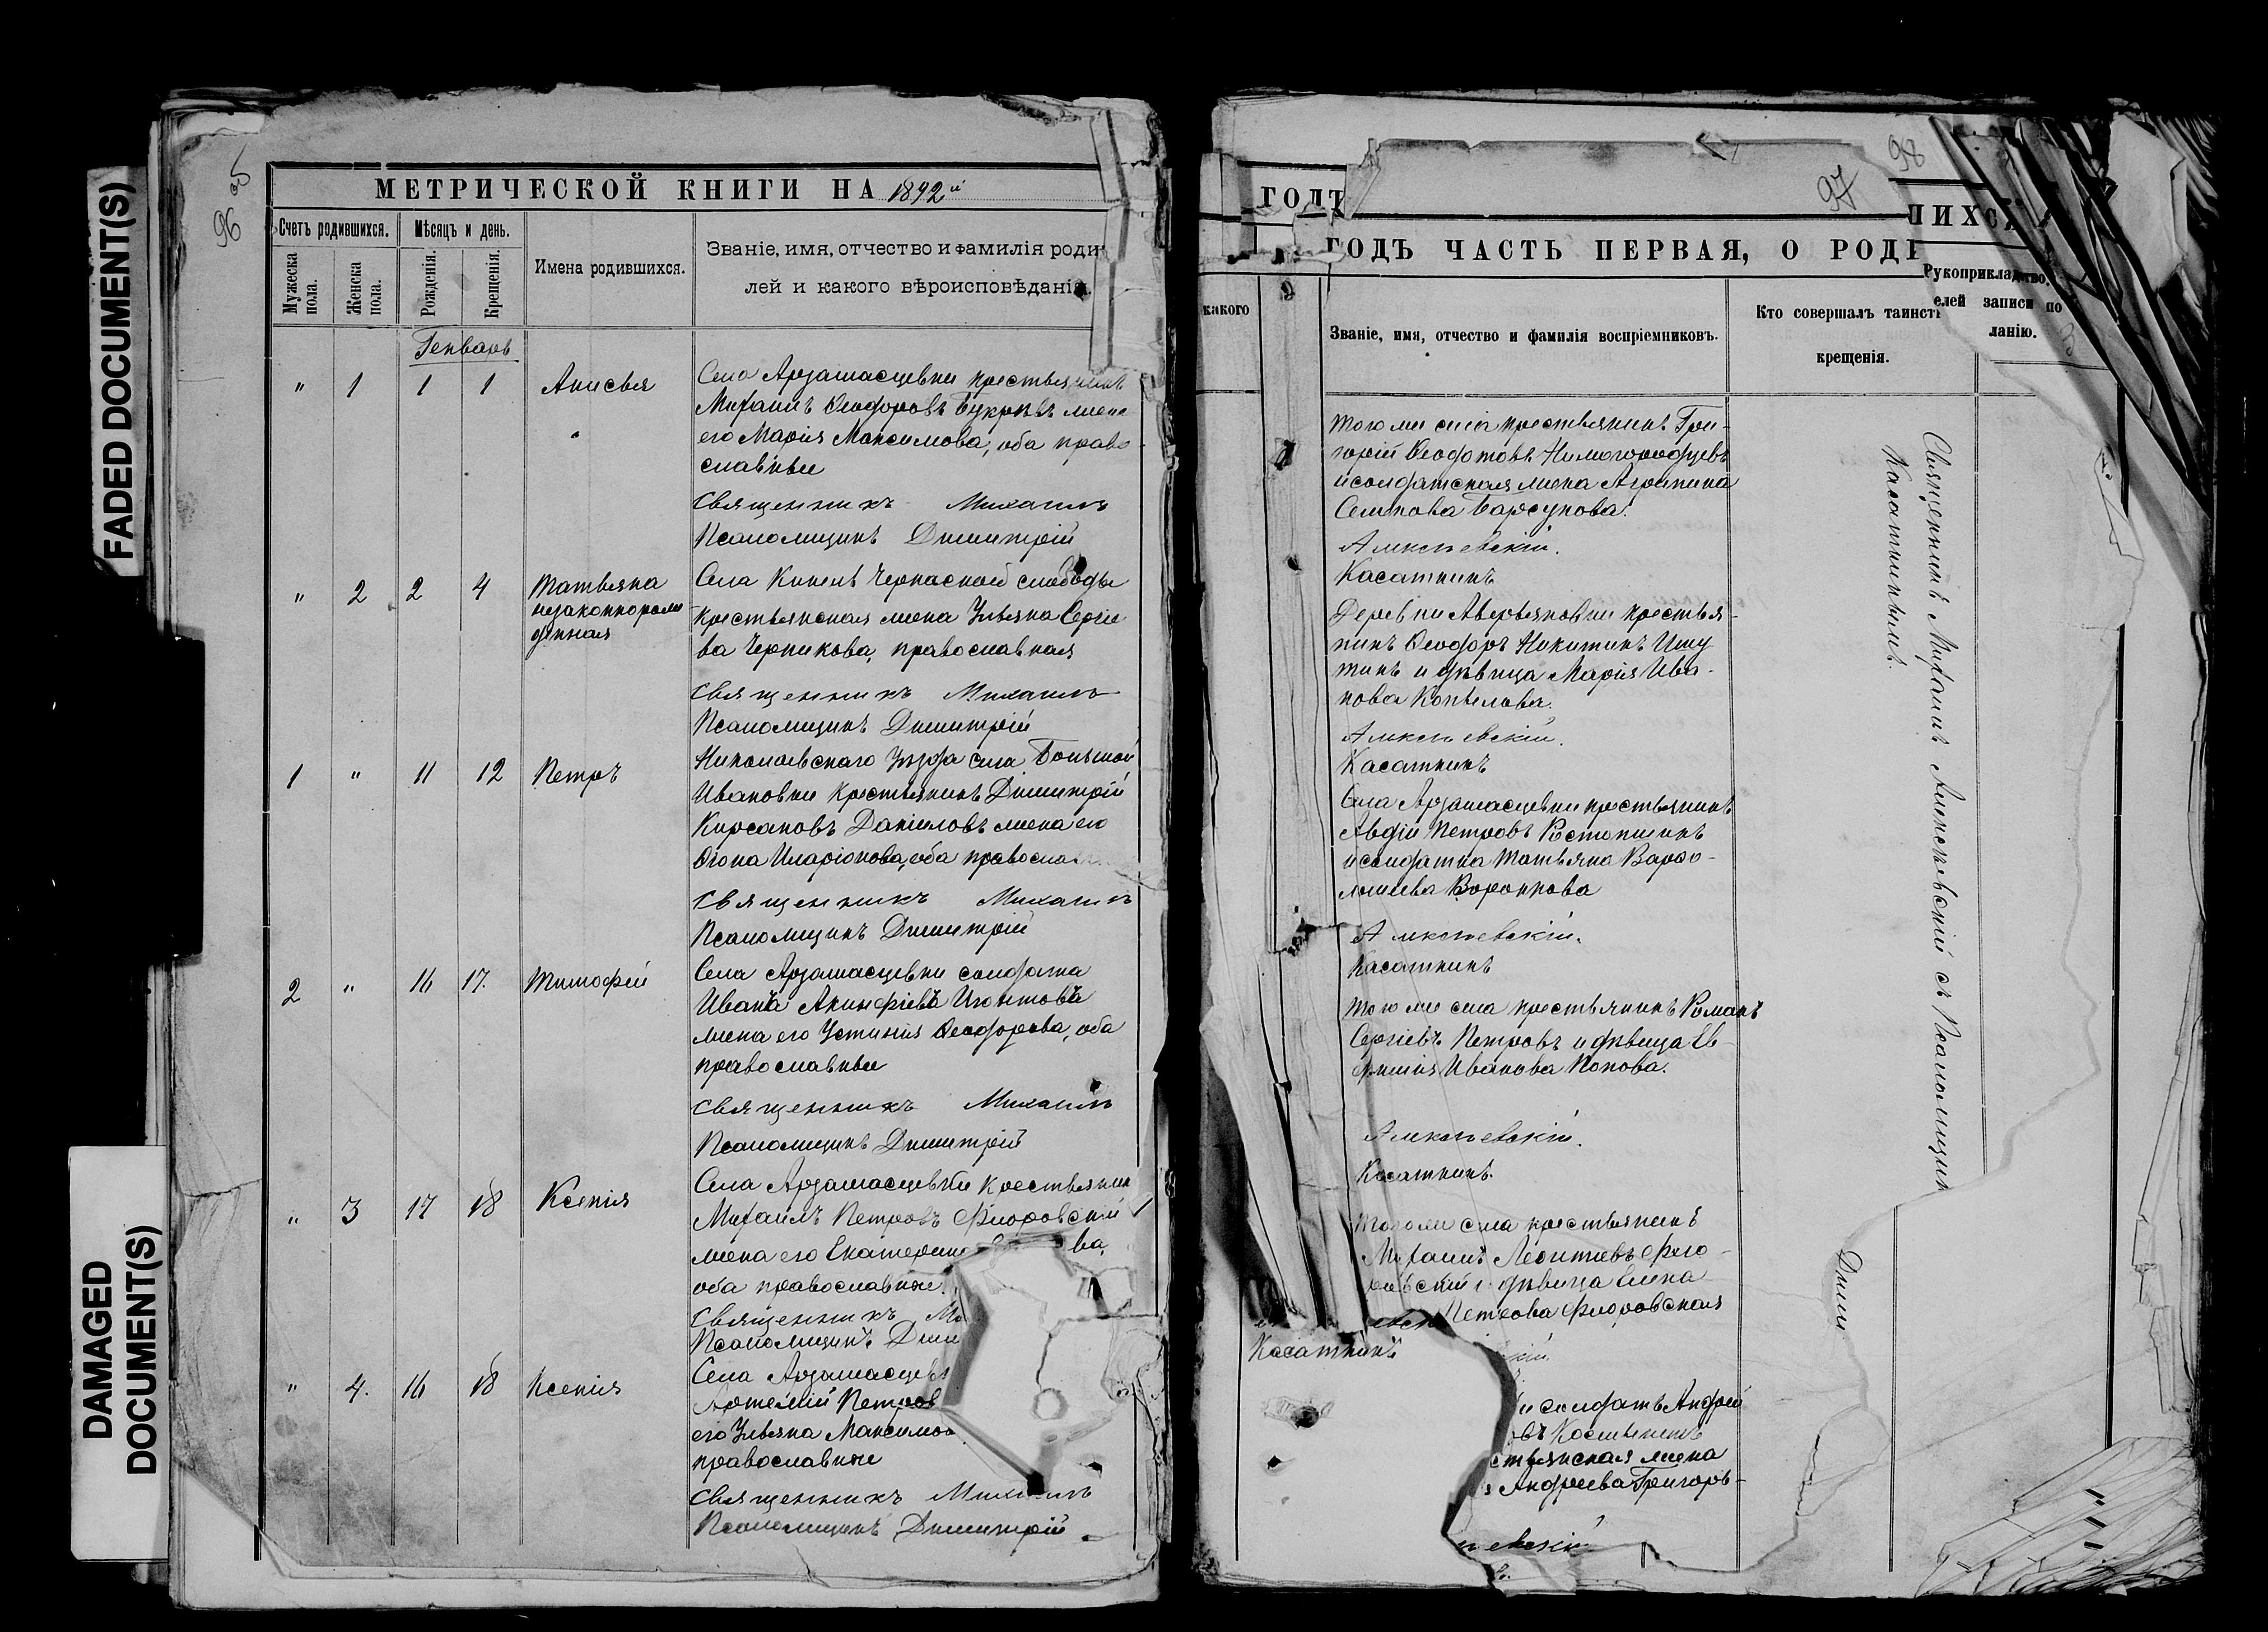 FADED DOCUMENT(S)
DAMAGED
DOCUMENT(S)
96
МЕТРИЧЕСКОЙ КНИГИ НА 1892й
Счетъ родившихся.
Мѣсяцъ и день.
Мужеска пола.
Женска пола.
Рожденія.
Крещенія.
Имена родившихся.
Званіе, имя, отчество и фамилія роди
лей и какого вѣроисповѣданія.
Генварь
" 1 1 1 Анисья
Села Арзамасцевки крестьянинъ
Михаилъ Ѳеодоровъ жена
его Марія Максимова, оба право-
славные
Священникъ Михаилъ
Псаломщикъ Димитрій
" 2 2 4 Татьяна
незаконнорож
денная
Села Кинель Черкасской слободы
Крестьянская жена Ульяна Сергіе
ва Черникова, православная
Священникъ Михаилъ
Псаломщикъ Димитрій
1 " 11 12 Петръ
Николаевскаго Уѣзда села Большой
Ивановки Крестьянинъ Димитрій
Кирсановъ Даніиловъ жена его
Иларіонова, оба правосла
Священникъ Михаилъ
Псаломщикъ Димитрій
2 " 16 17. Тимофей
Села Арзамасцевки солдата
Ивана
жена его Устинія Ѳеодорова, оба
православные
Священникъ Михаилъ
Псаломщикъ Димитрій
" 3 17 18 Ксенія
Села Арзамасцевки Крестьянин
Михаилъ Петровъ Флоровскій
жена его Екатерина ва,
оба православные.
Священникъ Ми
Псаломщикъ Дими
" 4. 16 18 Ксенія
Села Арзамасцев
Артемій Петров
его Ульяна Максимов
православные
Священникъ Михаилъ
Псаломщикъ Димитрій
ГОДЪ
97
98
ПИХСЯ
ГОДЪ ЧАСТЬ ПЕРВАЯ, О РОДИ
какого
Званіе, имя, отчество и фамилія воспріемниковъ.
Кто совершалъ таинст
крещенія.
Рукоприкладство
елей записи по
ланію.
Того же села крестьянинъ Гри-
горій Ѳеодотовъ Нижегородцевъ
и солдатская жена Агрипина
Семенова Барсукова.
Алексѣевскій.
Касаткинъ
Деревни Аверьяновки крестья-
нинъ Ѳеодоръ Никитинъ Ишу
тинъ и дѣвица Марія Ива-
нова Копылова.
Алексѣевскій.
Касаткинъ
Села Арзамасцевки крестьянинъ
Авдій Петровъ Растопшинъ
и солдатка Татьяна Варфо-
ломеева Воронкова
Алексѣевскій.
Касаткинъ
Того же села крестьянинъ Романъ
Сергіевъ Петровъ и дѣвица Ев-
фимія Иванова Попова.
Алексѣевскій.
Касаткинъ.
Того же села крестьянинъ
Михаилъ Леонтіевъ Фло-
ровскій и дѣвица Елена
Петрова Флоровская
Касаткинъ
скій
и солдатъ Андрей
овъ
стьянская жена
Андреева Григорь-
ѣевскій
Священникъ Михаилъ Алексѣевскій съ Псаломщик
Дими
Касаткинымъ.